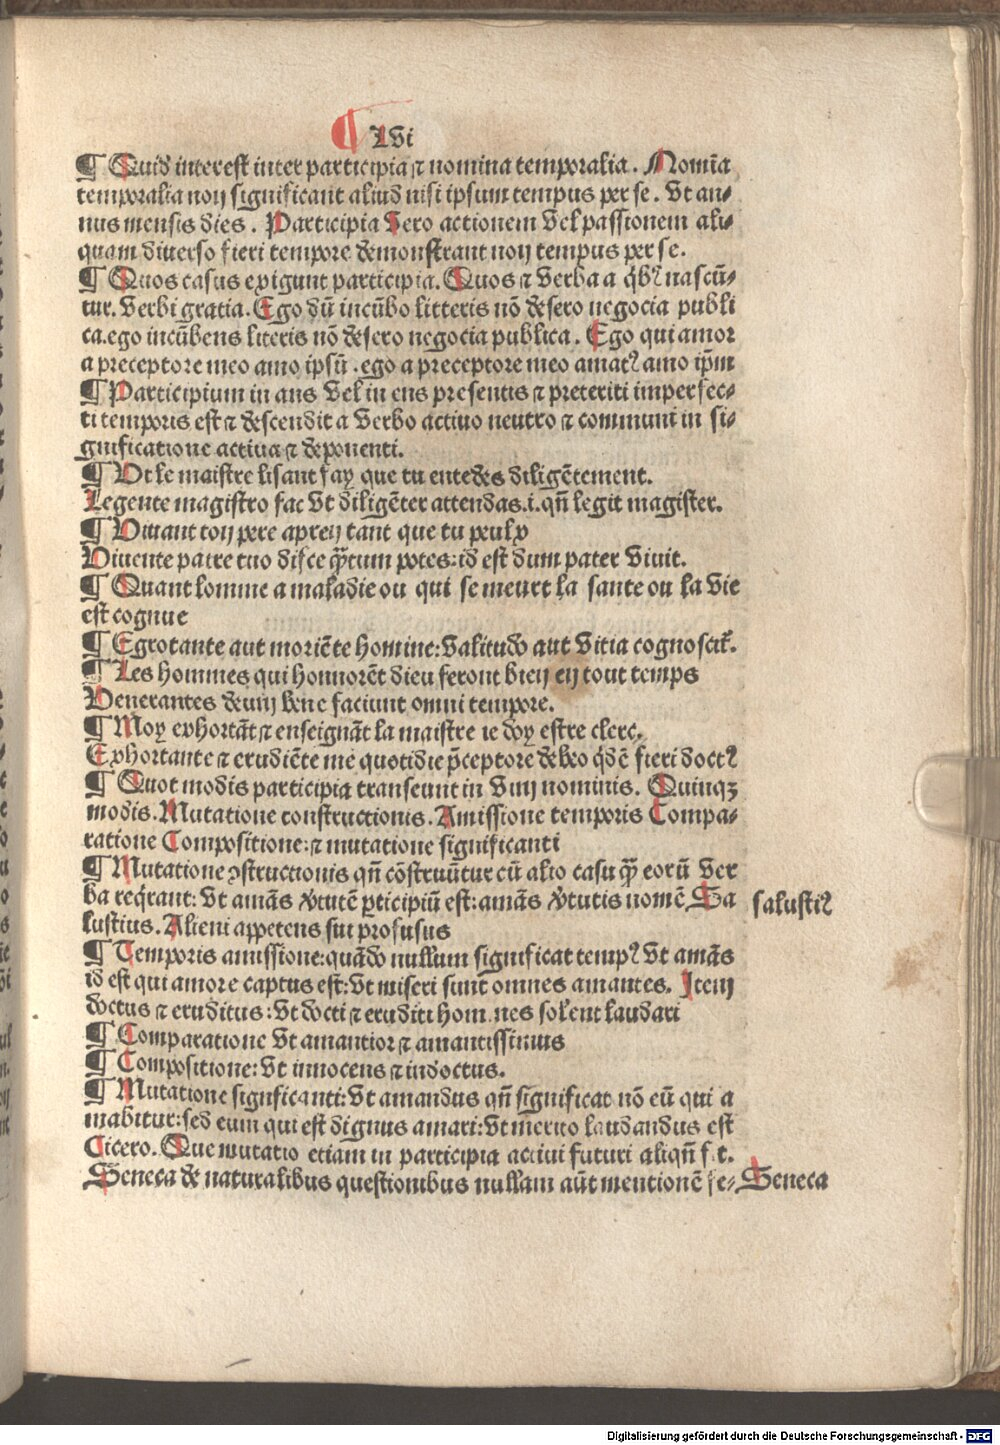 ¶ lvi
¶ Quid interest inter participia ⁊ nomina temporalia. Nomīa
temporalia non significant aliud nisi ipsum tempus per se. Vt an-
nus mensis dies. Participia vero actionem vel passionem ali-
quam diuerso fieri tempore demonstrant non tempus per se.
¶ Quos casus exigunt participia. Quos ⁊ verba a q̇bꝰ nascū-
tur. verbi gratia. Ego dū incūbo litteris nō desero negocia publi
ca. ego incūbens literis nō desero negocia publica. Ego qui amor
a preceptore meo amo ipsū. ego a preceptore meo amatꝰ amo ip̄m
¶ Participium in ans vel in ens presentis ⁊ preteriti imperfec-
ti temporis est ⁊ descendit a verbo actiuo neutro ⁊ communi in si-
gnificatione actiua ⁊ deponenti.
¶ Vt le maistre lisant fay que tu entedes diligētement.
Legente magistro fac vt diligēter attendas. i. qn̄ legit magister.
¶ Viuant ton pere apren tant que tu peulx
Viuente patre tuo disce q̄ꝫtum potes: id est dum pater viuit.
¶ Quant lomme a maladie ou qui se meurt la sante ou la vie
est cognue
¶ Egrotante aut moriēte homine: valitudo aut vitia cognoscit᷑.
¶ Les hommes qui honnorēt dieu feront bien en tout temps
Venerantes deum bene faciunt omni tempore.
¶ Moy exhortāt ⁊ enseignāt la maistre ie doy estre clerc.
Exhortante ⁊ erudiēte me quotidie p̄ceptore debeo q̇dē fieri doctꝰ
¶ Quot modis participia transeunt in vim nominis. Quinqꝫ
modis. Mutatione constructionis. Amissione temporis Compa-
ratione Compositione: ⁊ mutatione significanti
¶ Mutatione ꝯstructionis qn̄ cōstruūtur cū alio casu q̄ꝫ eorū ver
ba req̇rant: vt amās v̓tutē ꝑticipiū est: amās v̓tutis nomē Sa
salustiꝰ
lustius. Alieni appetens sui profusus
¶ Temporis amissione: quādo nullum significat tempꝰ vt amās
id est qui amore captus est: vt miseri sunt omnes amantes. Item
doctus ⁊ eruditus: vt docti ⁊ eruditi homines solent laudari
¶ Comparatione vt amantior ⁊ amantissimus
¶ Compositione: vt innocens ⁊ indoctus.
¶ Mutatione significanti: vt amandus qn̄ significat nō eū qui a
mabitur: sed eum qui est dignus amari: vt merito laudandus est
Cicero. Que mutatio etiam in participia actiui futuri aliqn̄ fit.
Seneca de naturalibus questionibus nullam aūt mentionē fe-
Seneca
Digitalisierung gefördert durch die Deutsche Forschungsgemeinschaft - DFG